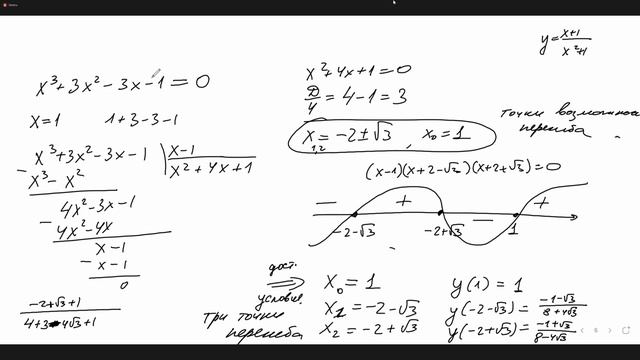 y = x+1 / x²+1
x³+3x²-3x-1=0
x=1 1+3-3-1
x³+3x²-3x-1 | x-1
x³-x² x²+4x+1
4x²-3x-1
4x²-4x
x-1
x-1
0
-2+√3+1 / 4+3-4√3+1
x²+4x+1=0
D/4 = 4-1=3
x₁,₂=-2±√3, x₀=1
точки возможного
перегиба
(x-1)(x+2-√3)(x+2+√3)=0
- + - +
-2-√3 -2+√3 1
дост.
⇒
условие
Три точки
перегиба
x₀=1 y(1)=1
x₁=-2-√3 y(-2-√3)= -1-√3 / 8+4√3
x₂=-2+√3 y(-2+√3)= -1+√3 / 8-4√3